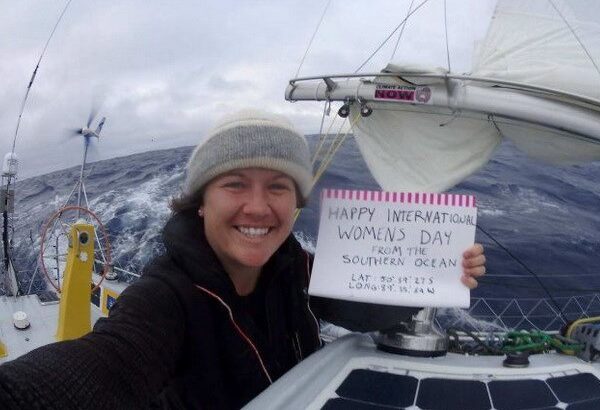 CLIMATE ACTION
NOW
HAPPY INTERNATIONAL
WOMENS DAY
FROM THE
SOUTHERN OCEAN
LAT: 50° 59' 27 S